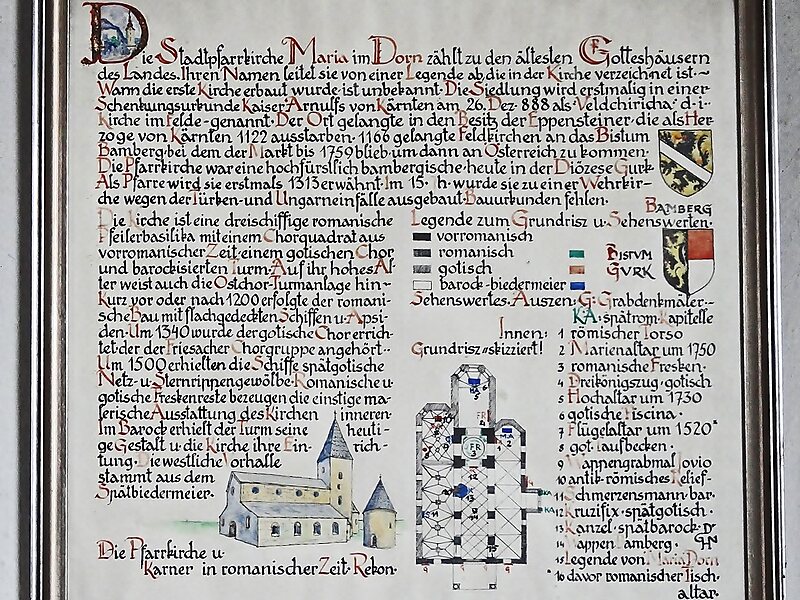 Die Stadtpfarrkirche Maria im Dorn zählt zu den ältesten Gotteshäusern
des Landes. Ihren Namen leitet sie von einer Legende ab, die in der Kirche verzeichnet ist.~
Wann die erste Kirche erbaut wurde ist unbekannt. Die Siedlung wird erstmalig in einer
Schenkungsurkunde Kaiser Arnulfs von Kärnten am 26. Dez. 888 als "Veldchiricha" d.i.
Kirche im Felde - genannt. Der Ort gelangte in den Besitz der Eppensteiner, die als Her-
zoge von Kärnten 1122 ausstarben. 1166 gelangte Feldkirchen an das Bistum
Bamberg, bei dem der Markt bis 1759 blieb, um dann an Österreich zu kommen.
Die Pfarrkirche war eine hochfürstlich bambergische, heute in der Diözese Gurk.
Als Pfarre wird sie erstmals 1313 erwähnt. Im 15. Jh. wurde sie zu einer Wehrkir-
che wegen der Türken- und Ungarneinfälle ausgebaut. Bauurkunden fehlen.
BAMBERG
Die Kirche ist eine dreischiffige romanische
Pfeilerbasilika mit einem Chorquadrat aus
vorromanischer Zeit, einem gotischen Chor
und barockisierten Turm. Auf ihr hohes Al-
ter weist auch die Ostchor-Turmanlage hin.~
Kurz vor oder nach 1200 erfolgte der romani-
sche Bau mit flachgedeckten Schiffen u. Apsi-
den. Um 1340 wurde der gotische Chor errich-
tet, der der Friesacher Chorgruppe angehört.
Um 1500 erhielten die Schiffe spätgotische
Netz- u. Sternrippengewölbe. Romanische u.
gotische Freskenreste bezeugen die einstige ma-
lerische Ausstattung des Kirchen inneren.
Im Barock erhielt der Turm seine heuti-
ge Gestalt u. die Kirche ihre Ein- rich-
tung. Die westliche Vorhalle
stammt aus dem
Spätbiedermeier.
Die Pfarrkirche u.
Karner in romanischer Zeit. Rekon.
Legende zum Grundrisz u. Sehenswerten.
vorromanisch
romanisch
gotisch
barock-biedermeier
BISTUM
GURK
Sehenswertes. Auszen: G: Grabdenkmäler.-
KA: spätrom. Kapitelle
Innen:
Grundrisz "skizziert!
1 römischer Torso
2 Marienaltar um 1750
3 romanische Fresken.
4 Dreikönigszug, gotisch
5 Hochaltar um 1730
6 gotische Piscina.
7 Flügelaltar um 1520
8 got. Taufbecken.
9 Wappengrabmal Jovio
10 antik-römisches Relief-
11 Schmerzensmann bar.
12 Kruzifix, spätgotisch.
13 Kanzel, spätbarock
14 Wappen Bamberg.
15 Legende von Maria Dorn
16 davor romanischer Tisch-
altar.